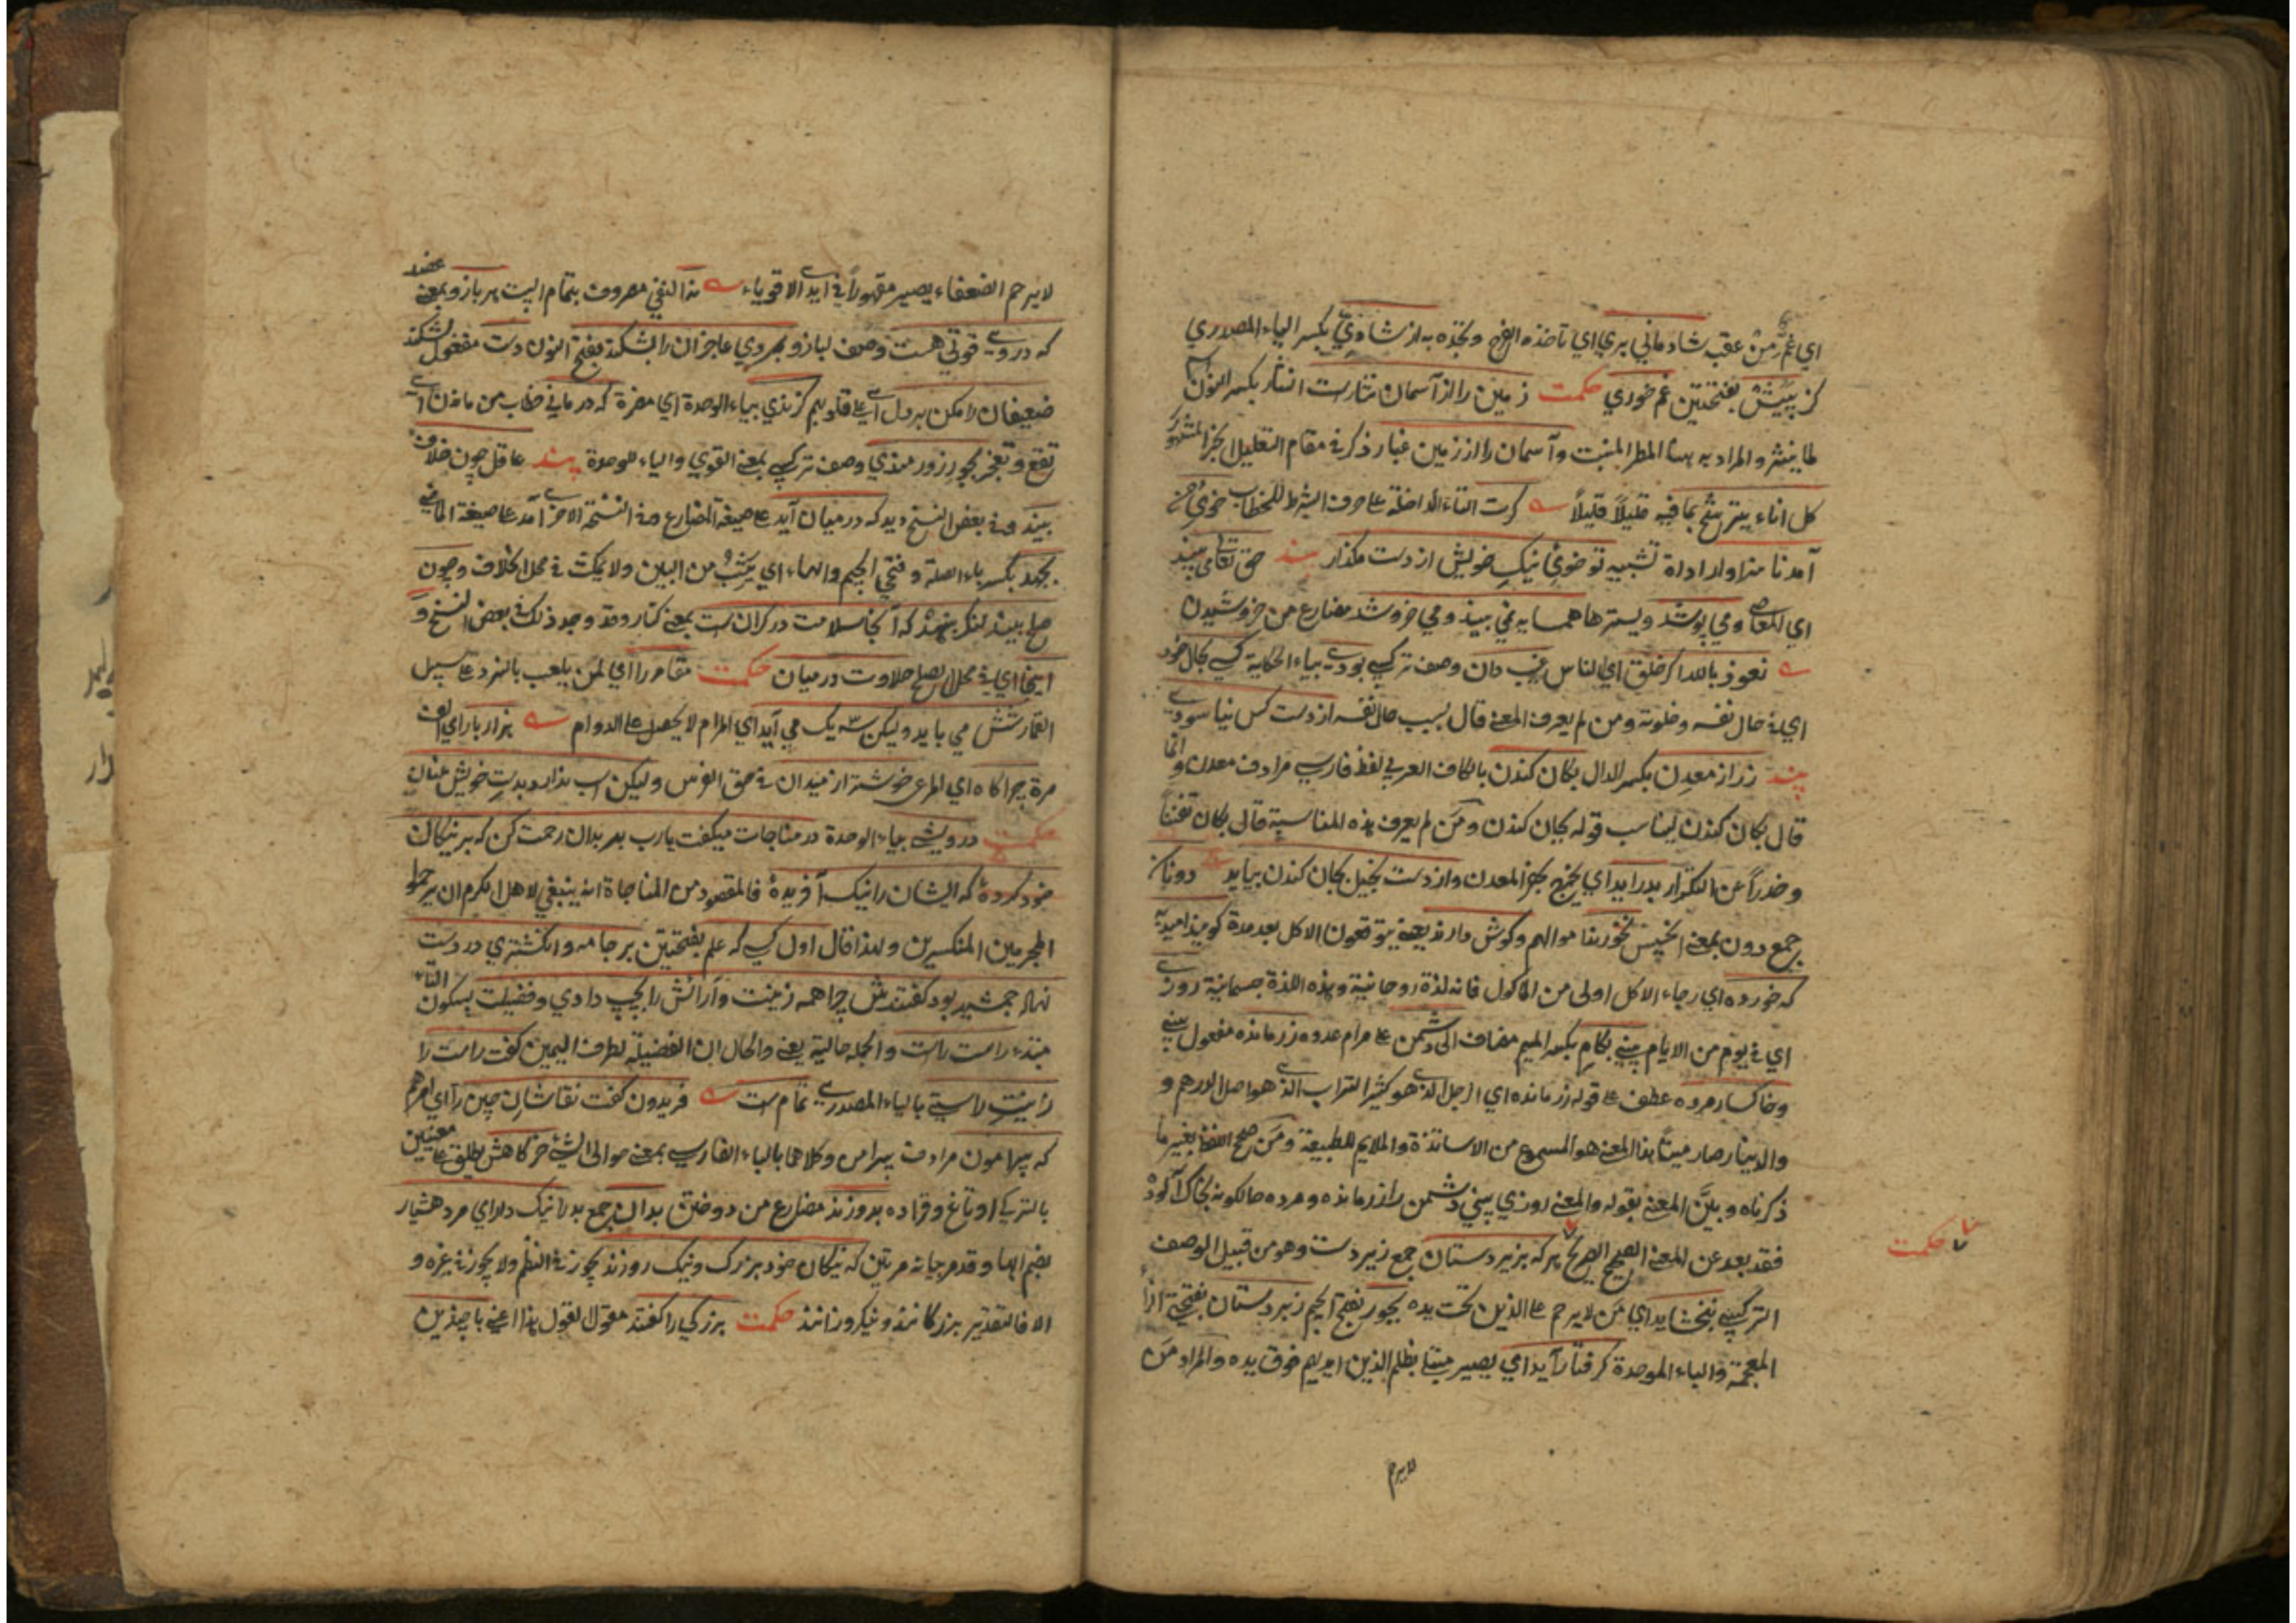 اي غم من عقب شادماني بري اي تأخذه الفرح وبخذه به از شاديي بكسر الياء المصدري
كز پيش بفتحتين غم خوري حكمت زمين را از آسمان نثارست النثار بكسر النون
ما ينثر والمراد به هنا المطر المنبت وآسمان را از زمين غبار ذكر في مقام التعليل الخبر المشهور
كل اناء يترشح بما فيه قليلاً قليلاً كرت التاء الداخلة على حرف الشرط للخطاب خوي من
آمد ناسزاوار اداة تشبيه تو خوي نيك خويش از دست مگذار پند حق تعالى مي بيند
اي المعاصي ومي پوشد ويسترها همسايه نمي بيند ومي خروشد مضارع من خروشيدن
نعوذ بالله اگر خلق اي الناس غيب دان وصف تركيبي بودي بياء الحكاية كسي بحال خود
اي في حال نفسه وخلوته ومن لم يعرف المعنى قال بسبب حال نفسه از دست كس نياسودي
پند زر از معدن بكسر الدال بكان كندن بالكاف العربي لفظ فارسي مرادف معدن وانما
قال بكان كندن ليناسب قوله بجان كندن ومن لم يعرف هذه المناسبة قال بكان تفننا
وحذراً عن التكرار بدر آيد اي يخرج بحفر المعدن واز دست بخيل بجان كندن بيايد دونان
جمع دون بمعنى الخسيس نخورند اموالهم وگوش دارند يعني يتوقعون الاكل بعد مدة گويند اميد به
كه خورده اي رجاء الاكل اولى من المأكول فانه لذة روحانية وهذه اللذة جسمانية روزي
اي في يوم من الايام بيني بكام بكسر الميم مضاف الى دشمن على مرام عدوه زر مانده مفعول بيني
وخاكسار مرده عطف على قوله زر مانده اي الرجل الذي هو كثير التراب الذي هو اصل الدرهم و
والدينار صار ميتاً هذا المعنى هو المسموع من الاساتذة والملايم للطبيعة ومن صحح اللفظ بغير ما
ذكرناه وبين المعنى بقوله والمعنى روزي بيني دشمن را زر مانده ومرده حالكونه بخاك آلوده
فقد بعد عن المعنى الصحيح الصريح هر كه بزيردستان جمع زيردست وهو من قبيل الوصف
حكمت
التركيبي نبخشايد اي من لا يرحم على الذين تحت يده بجور بفتح الجيم زبردستان بفتح الزاء
المعجمة والباء الموحدة گرفتار آيد اي يصير مبتلا بظلم الذين ايديهم فوق يده والمراد من
لا يرحم
لا يرحم الضعفاء يصير مقهوراً في ايدي الاقوياء نه النفي مصروف بتمام البيت هر بازو بمعنى عضد
كه در وي قوتي هست وصف لبازو بمردي عاجزان را بشكند بفتح النون دست مفعول بشكند
ضعيفان را مكن بر دل اي على قلوبهم گزندي بياء الوحدة اي مضرة كه درماني خطاب من ماندن اي
تقع وتعجز بجور زورمندي وصف تركيبي بمعنى القوي والياء للوحدة پند عاقل چون خلاف
بيند وفي بعض النسخ ديد كه در ميان آيد على صيغة المضارع وفي النسخة الاخرى آمد على صيغة الماضي
بجهد بكسر باء الصلة وفتحي الجيم والهاء اي يثب من البين ولا يمكث في محل الخلاف وچون
صلح بيند لنگر بنهد كه آنجا سلامت در كران است بمعنى كنار وقد وجد ذلك في بعض النسخ و
اينجا اي في محل الصلح حلاوت در ميان حكمت مقامر را اي لمن يلعب بالنرد على سبيل
القمار شش مي بايد وليكن سه يك مي آيد اي المرام لا يحصل على الدوام هزار بار اي الف
مرة چراگاه اي المرعى خوشتر از ميدان في حق الفرس وليكن اسب ندارد بدست خويش عنان
حكمت درويشي بياء الوحدة در مناجات ميگفت يارب بر بدان رحمت كن كه بر نيكان
خود كرده كه ايشان را نيك آفريده فالمقصود من المناجاة انه ينبغي لاهل الكرم ان يرحموا
المجرمين المنكسرين ولهذا قال اول كسي كه علم بفتحتين بر جامه وانگشتري در دست
نهاد جمشيد بود گفتندش چرا همه زينت وآرائش را بچپ دادي وفضيلت بسكون التاء
مبتدء راست راست والجملة حالية يعني والحال ان الفضيلة لطرف اليمين گفت راست را
زينت راستي بالياء المصدري تمام ست فريدون گفت نقاشان چين را اي امرهم
كه پيرامون مرادف پيرامن وكلاهما بالباء الفارسي بمعنى حوالي الشيء خرگاهش يطلق على معنيين
بالتركي اوتاغ وقراده بدوزند مضارع من دوختن بدان جمع بد را نيك دار اي مرد هشيار
بضم الهاء وقد مر بيانه مرتين كه نيكان خود بزرگ ونيك روزند يجوز في النظم ولا يجوز في غيره و
الا فالتقدير بزرگانند ونيكروزانند حكمت بزرگي را گفتند مقول القول هذا اعني با چندين